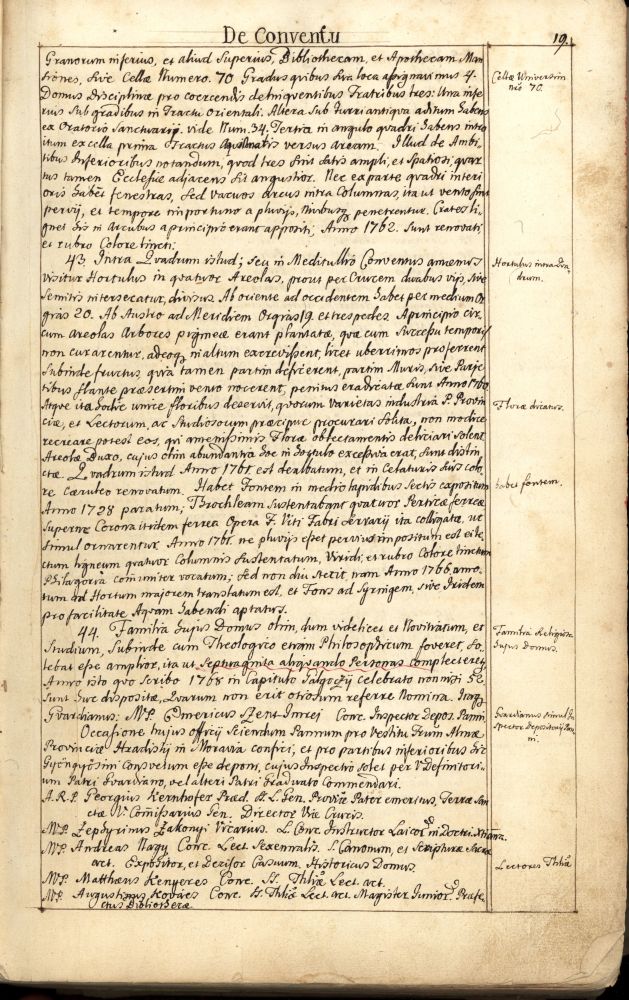 De Conventu
19.
Granorum inferius, et aliud Superius, Bibliothecam, et Apothecam Man
siones, sive Cellæ Numero. 70 Gradus quibus sua loca assignavimus 4.
Domus Disciplinæ pro coercendis delinquentibus Fratribus tres: Una infe
rius Sub gradibus in Tractu Orientali. Altera Sub turri antiqua aditum habens
ex Oratorio Sanctuarij. vide Num. 34. Tertia in angulo quadri habens intro
itum ex cella prima Tractus Aquilonaris versus aream. Illud de Ambi,
tibus Inferioribus notandum, quod tres sint satis ampli, et spatiosi, quar
tus tamen Ecclesiæ adjacens sit angustior. Nec ex parte quadri interi
oris habet fenestras, sed vacuos arcus intra Columnas, ita ut vento sint
pervij, et tempore importuno a pluvijs, penetrentur. Crates li,
gneæ his in Arcubus a principio erant appositi, Anno 1762. Sunt renovati,
et rubro Colore tincti.
43. Intra Quadrum istud; seu in Meditullio Conventus amœnus
visitur Hortulus in quatuor Areolas, prout per Crucem duabus vijs, sive
semitis intersecatur, divisus. Ab oriente ad occidentem habet per medium Or
gias 20. Ab Austro ad Meridiem Orgias 19. et tres pedes. A principio cir
cum areolas Arbores pigmeæ erant plantatæ, quæ cum Successu temporis
non curarentur, adeoq in altum excrevissent, licet uberrimos proferrent
Subinde fructus, quia tamen partim deficerent, partim Muris, sive Parie
tibus flante præsertim vento nocerent, penitus eradicatæ Sunt Anno 1760
Atque ita hodie unice floribus deservit, quorum varietas industria P. Provin
ciæ, et Lectorum, ac Studiosorum præcipue procurari solita, non modice
recreare potest eos, qui amænissimis Floræ oblectamentis deliciari solent.
Areolæ Buxo, cujus olim abundantia hoc in hortulo excessiva erat, Sunt distin
ctæ. Quadrum istud Anno 1765 est dealbatum, et in Celaturis suis colo
re cæruleo renovatum. Habet Fontem in medio lapidibus Sectis expositum
Anno 1728 paratum; Trochleam Sustentabant quatuor Perticæ ferreæ
Superne Corona itidem ferrea Opera F. Viti Fabri Ferrarij ita colligatæ, ut
simul ornarentur. Anno 1761. ne pluvijs esset pervius impositum est ei te,
ctum ligneum quatuor Columnis Sustentatum, Viridi, et rubro Colore tinctum
Philagoria communiter vocatum; sed non diu stetit, nam Anno 1766 amo,
tum ad Hortum majorem translatum est, et Fons ad Syringem, sive Iridem
pro facilitate Aquam habendi aptatus.
44. Familia hujus Domus olim, dum videlicet et Novitiatum, et
Studium, Subinde cum Theologico etiam Philosophicum foveret, So,
lebat esse amplior, ita ut Septuaginta aliquando Personas complecteretur
Anno isto quo Scribo 1768 in Capitulo Galgoczij celebrato non nisi 52
Sunt huc dispositæ, Quarum non erit otiosum referre Nomina. Itaq
Gvardianus: MVP. Emericus Szent-Imrei Conc. Inspector depos. Panni.
Occasione hujus officij Sciendum Pannum pro Vestitu Frum Almæ
Provinciæ Hradisij in Moravia confici, et pro partibus inferioribus hic
Gyöngyösini Consvetum esse deponi, cujus Inspectio solet per V. Definitori,
um Patri Gvardiano, vel alteri Patri Graduato Commendari.
A.R.P. Georgius Kernhofer Præd. A. L. Gen. Provinciæ Pater emeritus, Terræ San
ctæ V. Commissarius Gen. Director Viæ Crucis.
MVP. Zephyrinus Zakonyi Vicarius. L. Conc. Instructor Laicor. in Doctri. Xtiana.
MVP. Andreas Nagy Conc. Lect. Sexennalis. S. Canonum, et Scripturæ Sacræ
act. Expositor, et Decisor Casuum. Historicus Domus.
MVP. Matthæus Kenyeres Conc. SS. Thliæ Lect. act.
MVP. Augustinus Kovács Conc. SS. Thliæ Lect. act. Magister Junior. Præfe,
ctus Bibliothecæ
Cellæ Universim
nro 70.
Hortulus intra Qua
drum.
Floræ dicatus.
habet fontem.
Familia Religiosa
hujus Domus.
Gvardianus simul In
spector Depositorij Pan
ni.
Lectores Thliæ